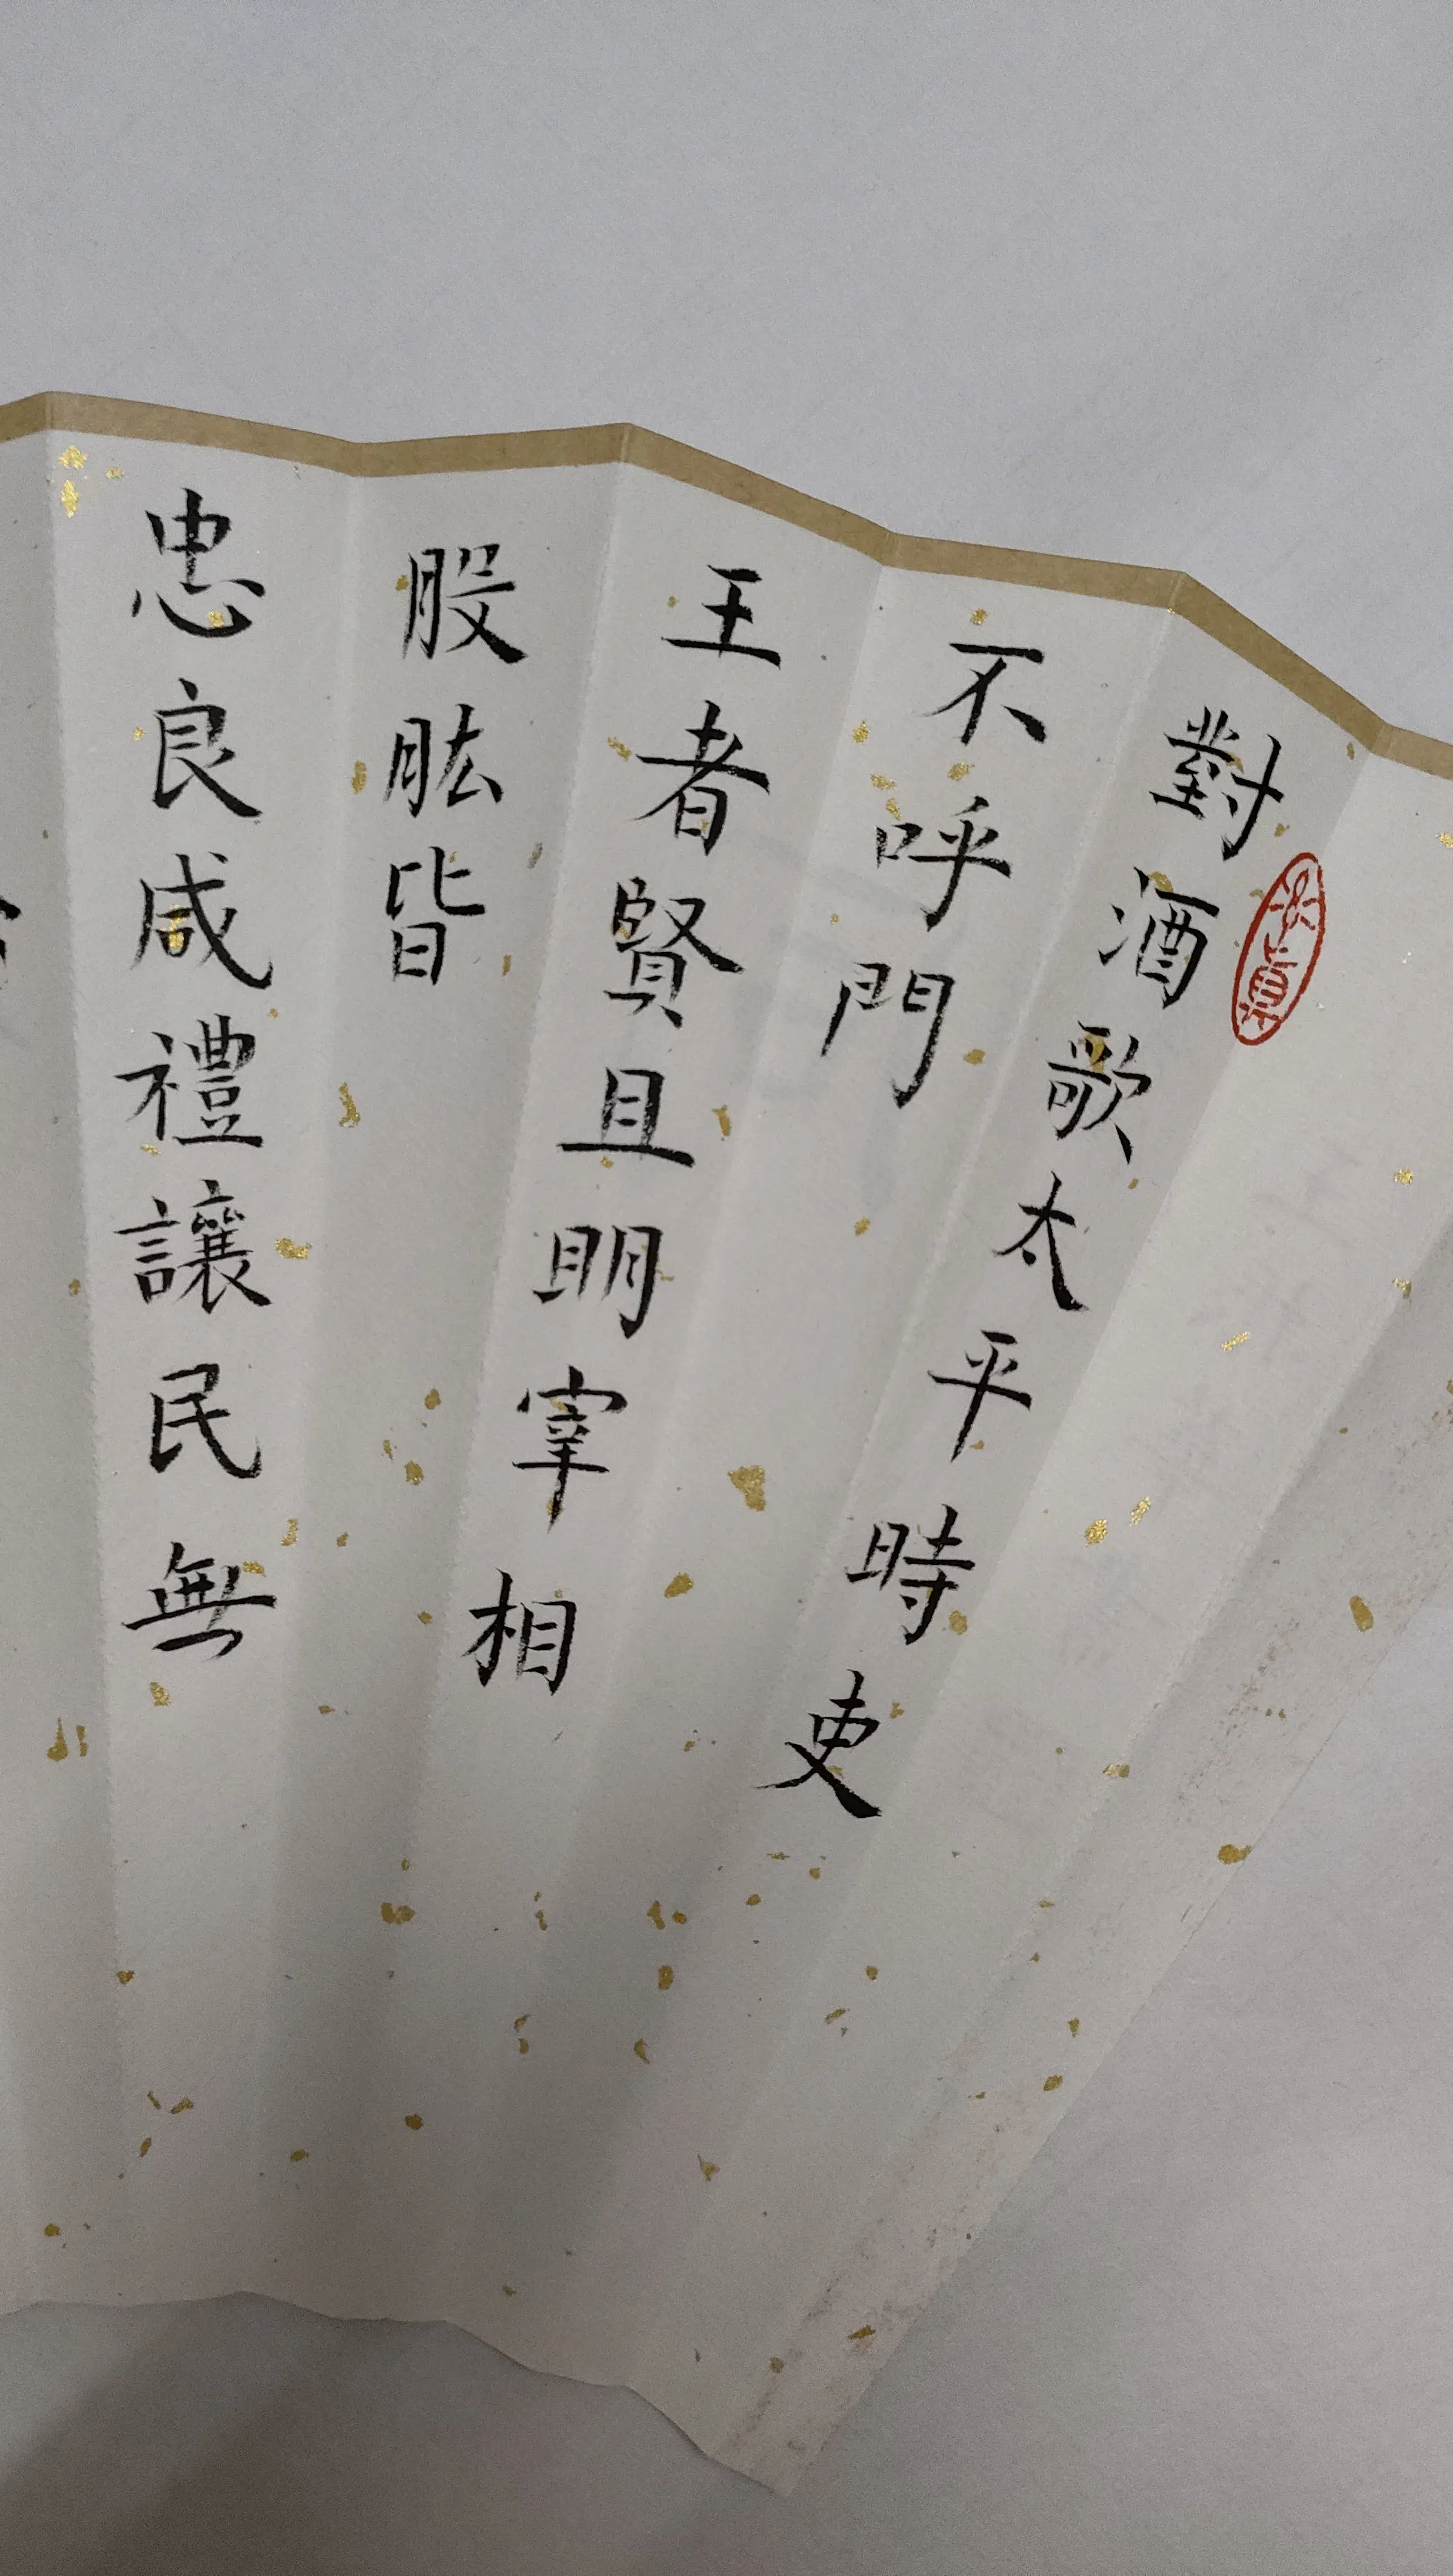 對酒歌太平時吏
不呼門
王者賢且明宰相
股肱皆
忠良咸禮讓民無